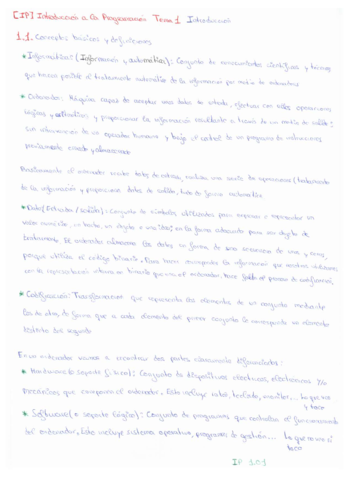 [IP] Introducción a la Programación Tema 1 Introducción
1.1. Conceptos básicos y definiciones
* Informática: (Información y automática): Conjunto de conocimientos científicos y técnicos
que hacen posible el tratamiento automático de la información por medio de ordenadores
* Ordenador: Máquina capaz de aceptar unos datos de entrada, efectuar con ellos operaciones
lógicas y aritméticas y proporcionar la información resultante a través de un medio de salida;
sin intervención de un operador humano y bajo el control de un programa de instrucciones
previamente creado y almacenado
el ordenador acepta datos de entrada, realiza una serie de operaciones (tratamiento
de la información y proporciona datos de salida, todo de forma automática
* Dato (Entrada / salida): Conjunto de símbolos utilizados para expresar o representar un
valor numérico, un hecho, un objeto o una idea; en la forma adecuada para ser objeto de
tratamiento. El ordenador almacena los datos en forma de una secuencia de unos y ceros,
porque utiliza el código binario. Para hacer corresponder la información que nosotros utilizamos
con la representación interna en binario que usa el ordenador, hace falta el proceso de codificación.
* Codificación: Transformación que representa los elementos de un conjunto mediante
los de otro, de forma que a cada elemento del primer conjunto le corresponda un elemento
distinto del segundo
En un ordenador vamos a encontrar dos partes claramente diferenciadas:
* Hardware (o soporte físico): Conjunto de dispositivos electrónicos, electromecánicos y/o
mecánicos que componen el ordenador. Esto incluye ratón, teclado, monitor... Lo que veo
y toco
* Software (o soporte lógico): Conjunto de programas que controlan el funcionamiento
del ordenador. Esto incluye sistema operativo, programas de gestión... Lo que no veo ni
toco
IP 1.0.1